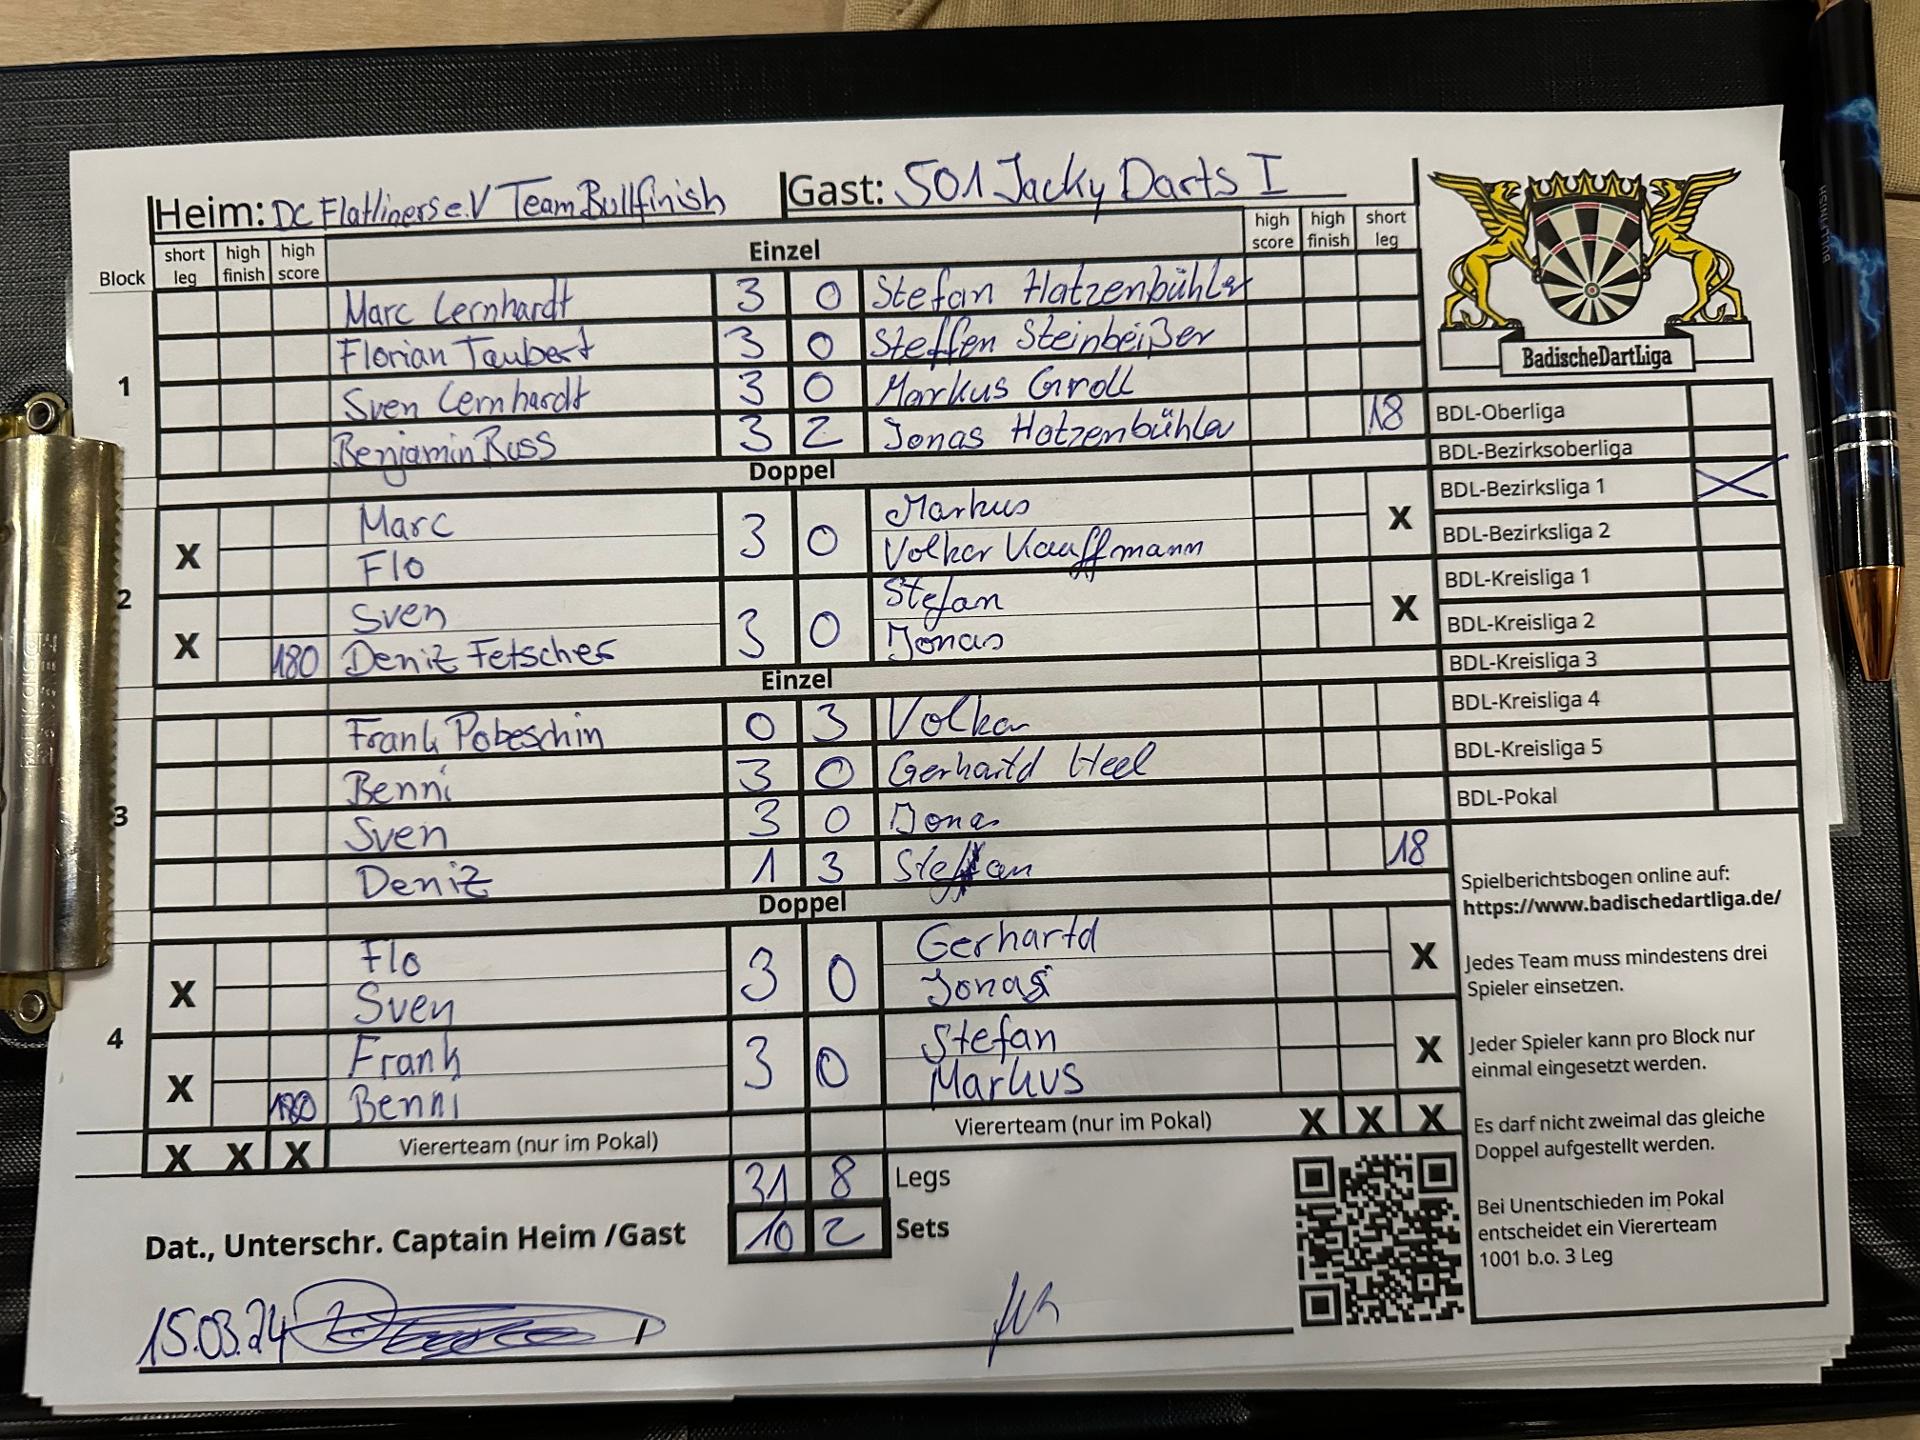 Heim: DC Flatliners e.V Team Bullfinish Gast: 501 Jacky Darts I
Block short leg high finish high score Einzel high score high finish short leg
1
Marc Lernhardt 3 0 Stefan Hatzenbühler
Florian Taubert 3 0 Steffen Steinbeißer
Sven Lernhardt 3 0 Markus Groll
Benjamin Russ 3 2 Jonas Hatzenbühler 18
Doppel
2
X Marc 3 0 Markus X
Flo Volker Kauffmann
X Sven 3 0 Stefan X
180 Deniz Fetscher Jonas
Einzel
3
Frank Pobeschin 0 3 Volker
Benni 3 0 Gerhartd Heel
Sven 3 0 Jonas
Deniz 1 3 Stefan 18
Doppel
4
X Flo 3 0 Gerhartd X
Sven Jonas
X Frank 3 0 Stefan X
180 Benni Markus
X X X Viererteam (nur im Pokal) Viererteam (nur im Pokal) X X X
31 8 Legs
10 2 Sets
Dat., Unterschr. Captain Heim /Gast
15.03.24
BadischeDartLiga
BDL-Oberliga
BDL-Bezirksoberliga
BDL-Bezirksliga 1 X
BDL-Bezirksliga 2
BDL-Kreisliga 1
BDL-Kreisliga 2
BDL-Kreisliga 3
BDL-Kreisliga 4
BDL-Kreisliga 5
BDL-Pokal
Spielberichtsbogen online auf:
https://www.badischedartliga.de/
Jedes Team muss mindestens drei
Spieler einsetzen.
Jeder Spieler kann pro Block nur
einmal eingesetzt werden.
Es darf nicht zweimal das gleiche
Doppel aufgestellt werden.
Bei Unentschieden im Pokal
entscheidet ein Viererteam
1001 b.o. 3 Leg
BULLFINISH